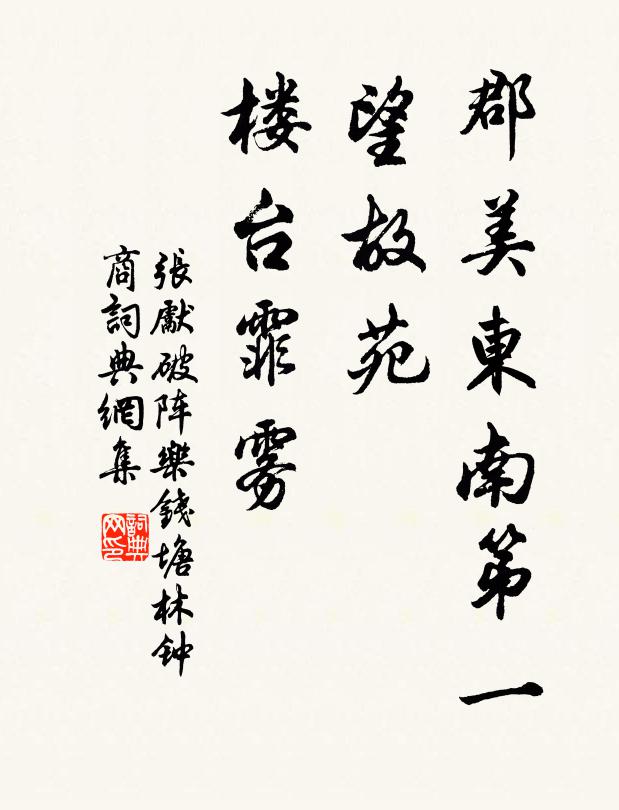 郡美東南第一
望故苑
楼台霏雾
張獻破阵樂錢塘林钟
商詞典網集
詞典
网印